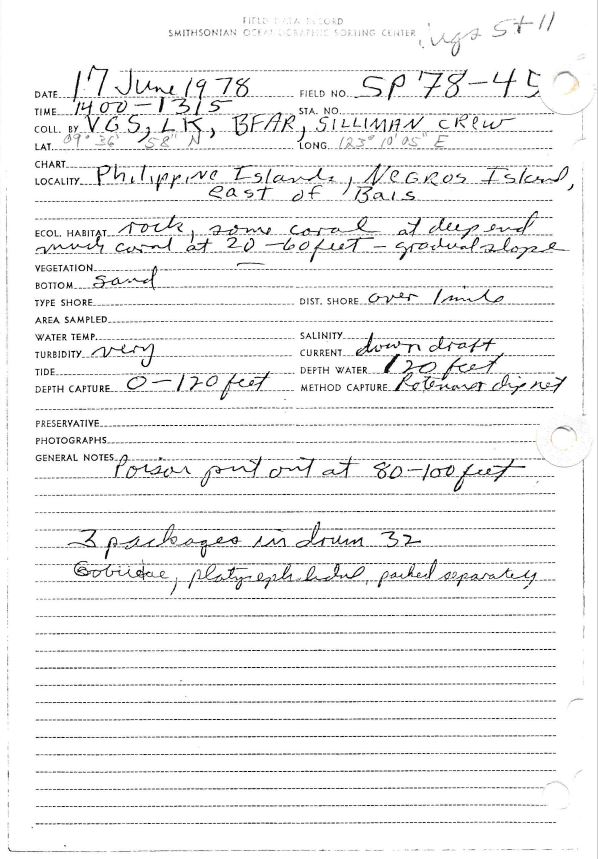 vgs St 11
FIELD DATA RECORD
SMITHSONIAN OCEANOGRAPHIC SORTING CENTER
DATE 17 June 1978 FIELD NO. SP 78-45
TIME 1400-1315 STA. NO.
COLL. BY VGS, LK, BFAR, SILLIMAN CREW
LAT. 09° 36' 58" N LONG. 123° 10' 05" E
CHART
LOCALITY Philippine Islands, Negros Island,
east of Bais
ECOL. HABITAT rock, some coral at deep end
much coral at 20-60 feet - gradual slope
VEGETATION —
BOTTOM sand
TYPE SHORE DIST. SHORE over 1 mile
AREA SAMPLED
WATER TEMP. SALINITY
TURBIDITY very CURRENT down draft
TIDE DEPTH WATER 120 feet
DEPTH CAPTURE 0-120 feet METHOD CAPTURE Rotenone dip net
PRESERVATIVE
PHOTOGRAPHS
GENERAL NOTES Poison put out at 80-100 feet
3 packages in drum 32
Gobiidae, packed separately